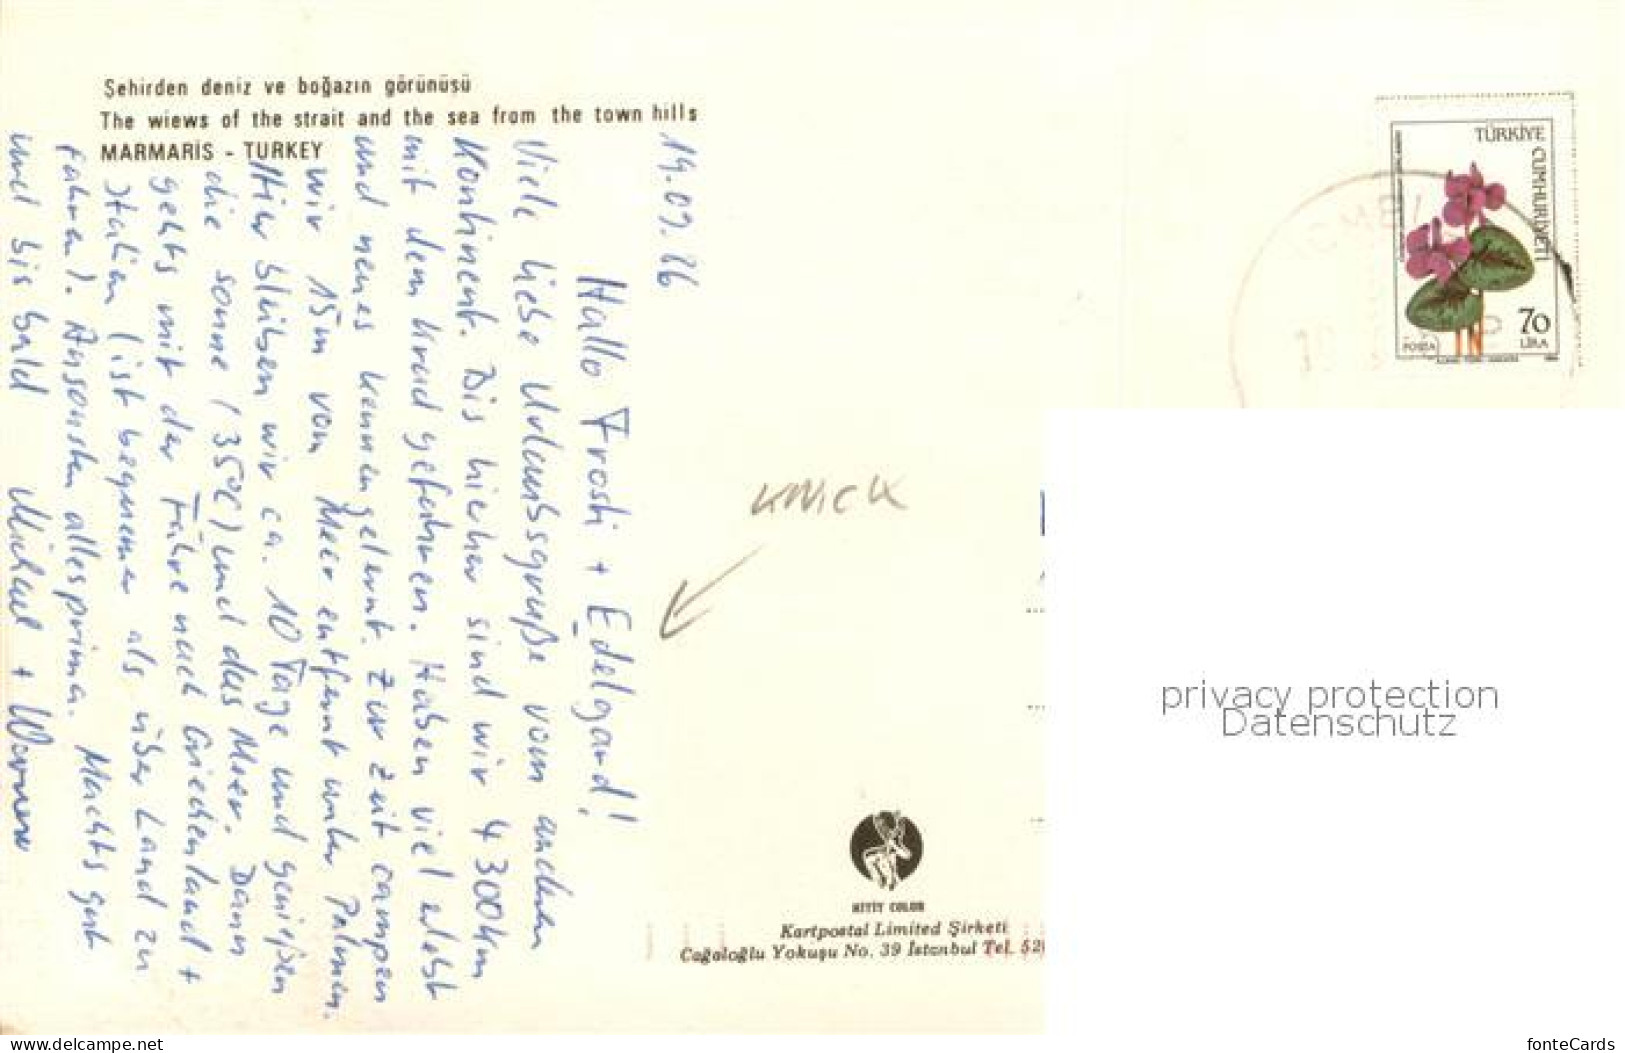 Şehirden deniz ve boğazın görünüsü
The wiews of the strait and the sea from the town hills
MARMARİS - TURKEY
19.09.86
Hallo Frosti + Edelgard!
Viele liebe Urlaubsgrüße vom anderen
Kontinent. Bis hierher sind wir 4300 km
mit dem Krad gefahren. Haben viel erlebt
und neues kennengelernt. Zur Zeit campen
wir 15m vom Meer entfernt unter Palmen.
Hier bleiben wir ca. 10 Tage und genießen
die Sonne (35°C) und das Meer. Dann
gehts mit der Fähre nach Griechenland +
Italien (ist bequemer als über Land zu
fahren). Ansonsten alles prima. Machts gut
und bis bald Michael + Werner
KNICK
TÜRKİYE CUMHURİYETİ
70
LİRA
POSTA
HITIT COLOR
Kartpostal Limited Şirketi
Cağaloğlu Yokuşu No. 39 İstanbul Tel. 52
privacy protection
Datenschutz
www.delcampe.net
fonteCards